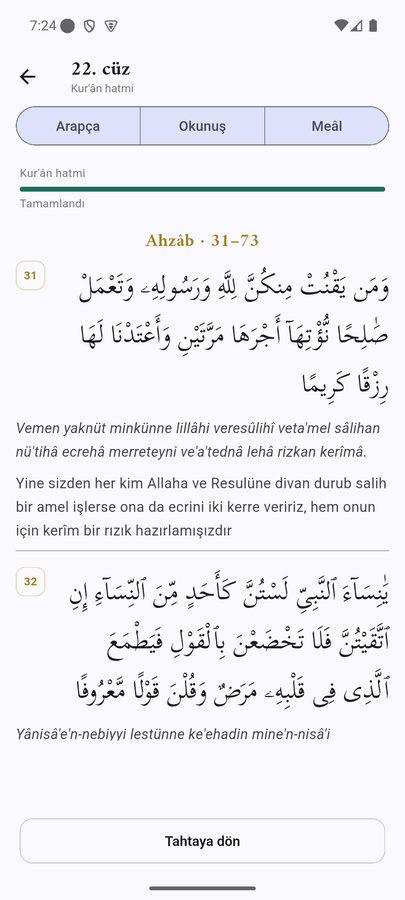 7:24
22. cüz
Kur'ân hatmi
Arapça
Okunuş
Meâl
Kur'ân hatmi
Tamamlandı
Ahzâb · 31–73
31
وَمَن يَقْنُتْ مِنكُنَّ لِلَّهِ وَرَسُولِهِۦ وَتَعْمَلْ
صَٰلِحًا نُّؤْتِهَآ أَجْرَهَا مَرَّتَيْنِ وَأَعْتَدْنَا لَهَا
رِزْقًا كَرِيمًا
Vemen yaknüt minkünne lillâhi veresûlihî veta'mel sâlihan
nü'tihâ ecrehâ merreteyni ve'a'tednâ lehâ rizkan kerîmâ.
Yine sizden her kim Allaha ve Resulüne divan durub salih
bir amel işlerse ona da ecrini iki kerre veririz, hem onun
için kerîm bir rızık hazırlamışızdır
32
يَٰنِسَآءَ ٱلنَّبِىِّ لَسْتُنَّ كَأَحَدٍ مِّنَ ٱلنِّسَآءِ إِنِ
ٱتَّقَيْتُنَّ فَلَا تَخْضَعْنَ بِٱلْقَوْلِ فَيَطْمَعَ
ٱلَّذِى فِى قَلْبِهِۦ مَرَضٌ وَقُلْنَ قَوْلًا مَّعْرُوفًا
Yânisâ'e'n-nebiyyi lestünne ke'ehadin mine'n-nisâ'i
Tahtaya dön